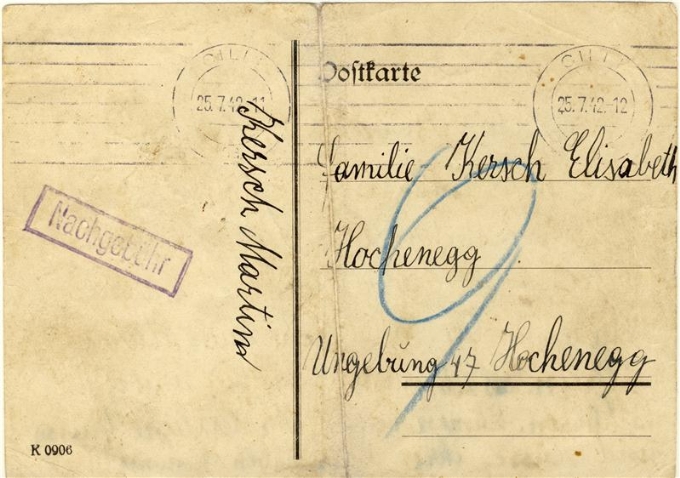 CILLI
25.7.42.-11
CILLI
25.7.42.-12
Postkarte
Kersch Martin
Familie Kersch Elisabeth
Hochenegg
Umgebung 47 Hochenegg
Nachgebühr
9
K 0906